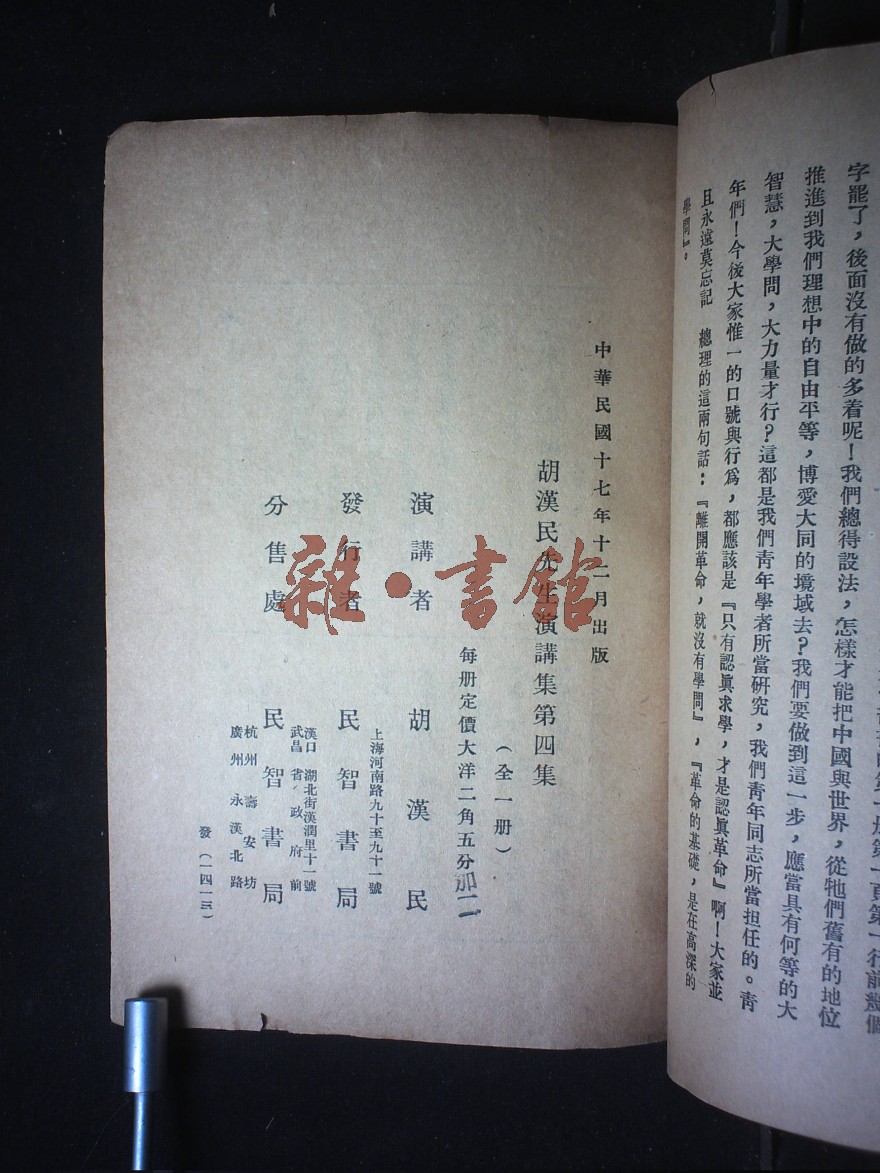 字罷了，後面沒有做的多着呢！我們總得設法，怎樣才能把中國與世界，從牠們舊有的地位
推進到我們理想中的自由平等，博愛大同的境域去？我們要做到這一步，應當具有何等的大
智慧，大學問，大力量才行？這都是我們靑年學者所當硏究，我們靑年同志所當担任的。靑
年們！今後大家惟一的口號與行爲，都應該是『只有認眞求學，才是認眞革命』啊！大家並
且永遠莫忘記　總理的這兩句話：『離開革命，就沒有學問』，『革命的基礎，是在高深的
學問』。
中華民國十七年十二月出版
胡漢民先生演講集第四集
（全一册）
每册定價大洋二角五分加二
演講者　胡漢民
上海河南路九十至九十一號
發行者　民智書局
漢口　湖北街漢潤里十一號
武昌　省政府前
分售處　民智書局
杭州　壽安坊
廣州　永漢北路
發（一四一三）
雜·書館